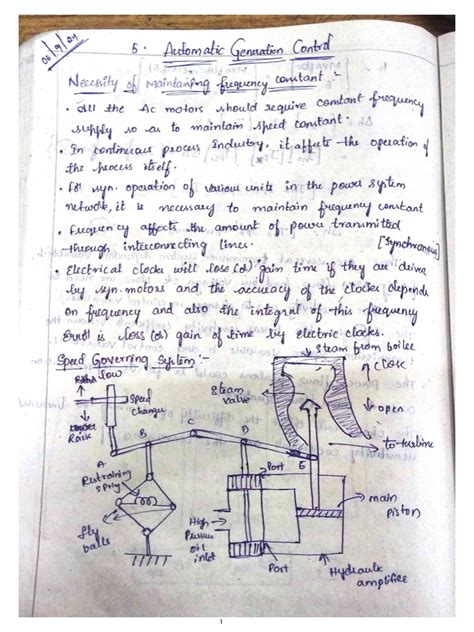 06/9/24
5. Automatic Generation Control
Necessity of Maintaining frequency constant :-
• All the Ac motors should require constant frequency
supply so as to maintain speed constant.
• In continuous process industry, it affects the operation of
the process itself.
• For syn. operation of various units in the power system
network, it is necessary to maintain frequency constant
• Frequency affects the amount of power transmitted
through interconnecting lines.
[Synchronous]
• Electrical clocks will lose (or) gain time if they are driven
by syn. motors and the accuracy of the clocks depends
on frequency and also the integral of this frequency
error is loss (or) gain of time by electric clocks.
Speed Governing System :-
low
Speed
Changer
Raise
A
B
C
D
E
Restraining
Spring
Fly
balls
High
Pressure
oil
inlet
Port
Port
Steam
Valve
Steam from boiler
Close
open
to turbine
main
piston
Hydraulic
amplifier
1